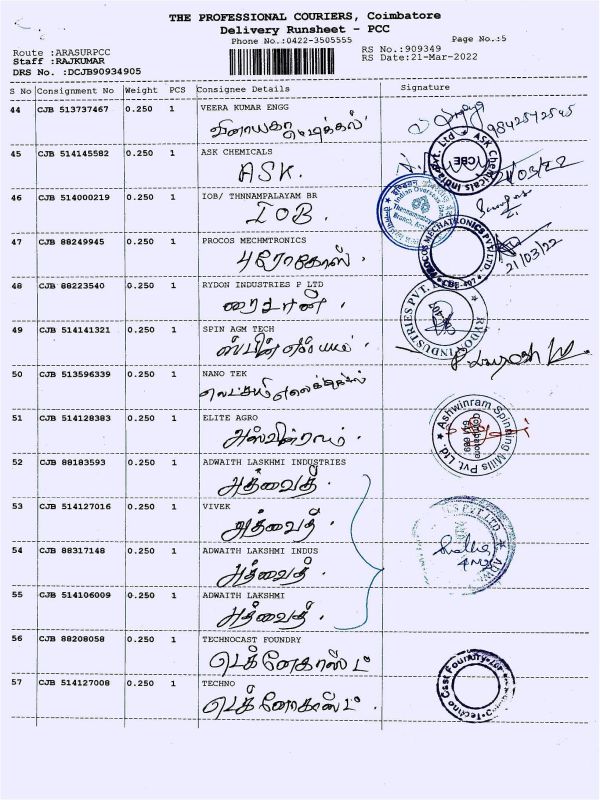 THE PROFESSIONAL COURIERS, Coimbatore
Delivery Runsheet - PCC
Phone No.:0422-3505555 Page No.:5
Route :ARASURPCC RS No.:909349
Staff :RAJKUMAR RS Date:21-Mar-2022
DRS No. :DCJB90934905
S No Consignment No Weight PCS Consignee Details Signature
44 CJB 513737467 0.250 1 VEERA KUMAR ENGG
9842572545
45 CJB 514145582 0.250 1 ASK CHEMICALS
ASK.
ASK Chemicals CBE
21/03/22
46 CJB 514000219 0.250 1 IOB/ THNNAMPALAYAM BR
IOB.
Indian Overseas Bank
47 CJB 88249945 0.250 1 PROCOS MECHMTRONICS
புரோகோஸ்.
PROCOS MECHATRONICS PVT. LTD.
21/03/22
48 CJB 88223540 0.250 1 RYDON INDUSTRIES P LTD
ரைடான்.
RYDON INDUSTRIES PVT. LTD.
49 CJB 514141321 0.250 1 SPIN AGM TECH
50 CJB 513596339 0.250 1 NANO TEK
51 CJB 514128383 0.250 1 ELITE AGRO
அஸ்வின்ராம்.
Ashwinram Spinning Mills Pvt. Ltd.
52 CJB 88183593 0.250 1 ADWAITH LASKHMI INDUSTRIES
அத்வைத்.
53 CJB 514127016 0.250 1 VIVEK
அத்வைத்.
54 CJB 88317148 0.250 1 ADWAITH LAKSHMI INDUS
அத்வைத்.
55 CJB 514106009 0.250 1 ADWAITH LAKSHMI
அத்வைத்.
56 CJB 88208058 0.250 1 TECHNOCAST FOUNDRY
டெக்னோகாஸ்ட்
57 CJB 514127008 0.250 1 TECHNO
டெக்னோகாஸ்ட்.